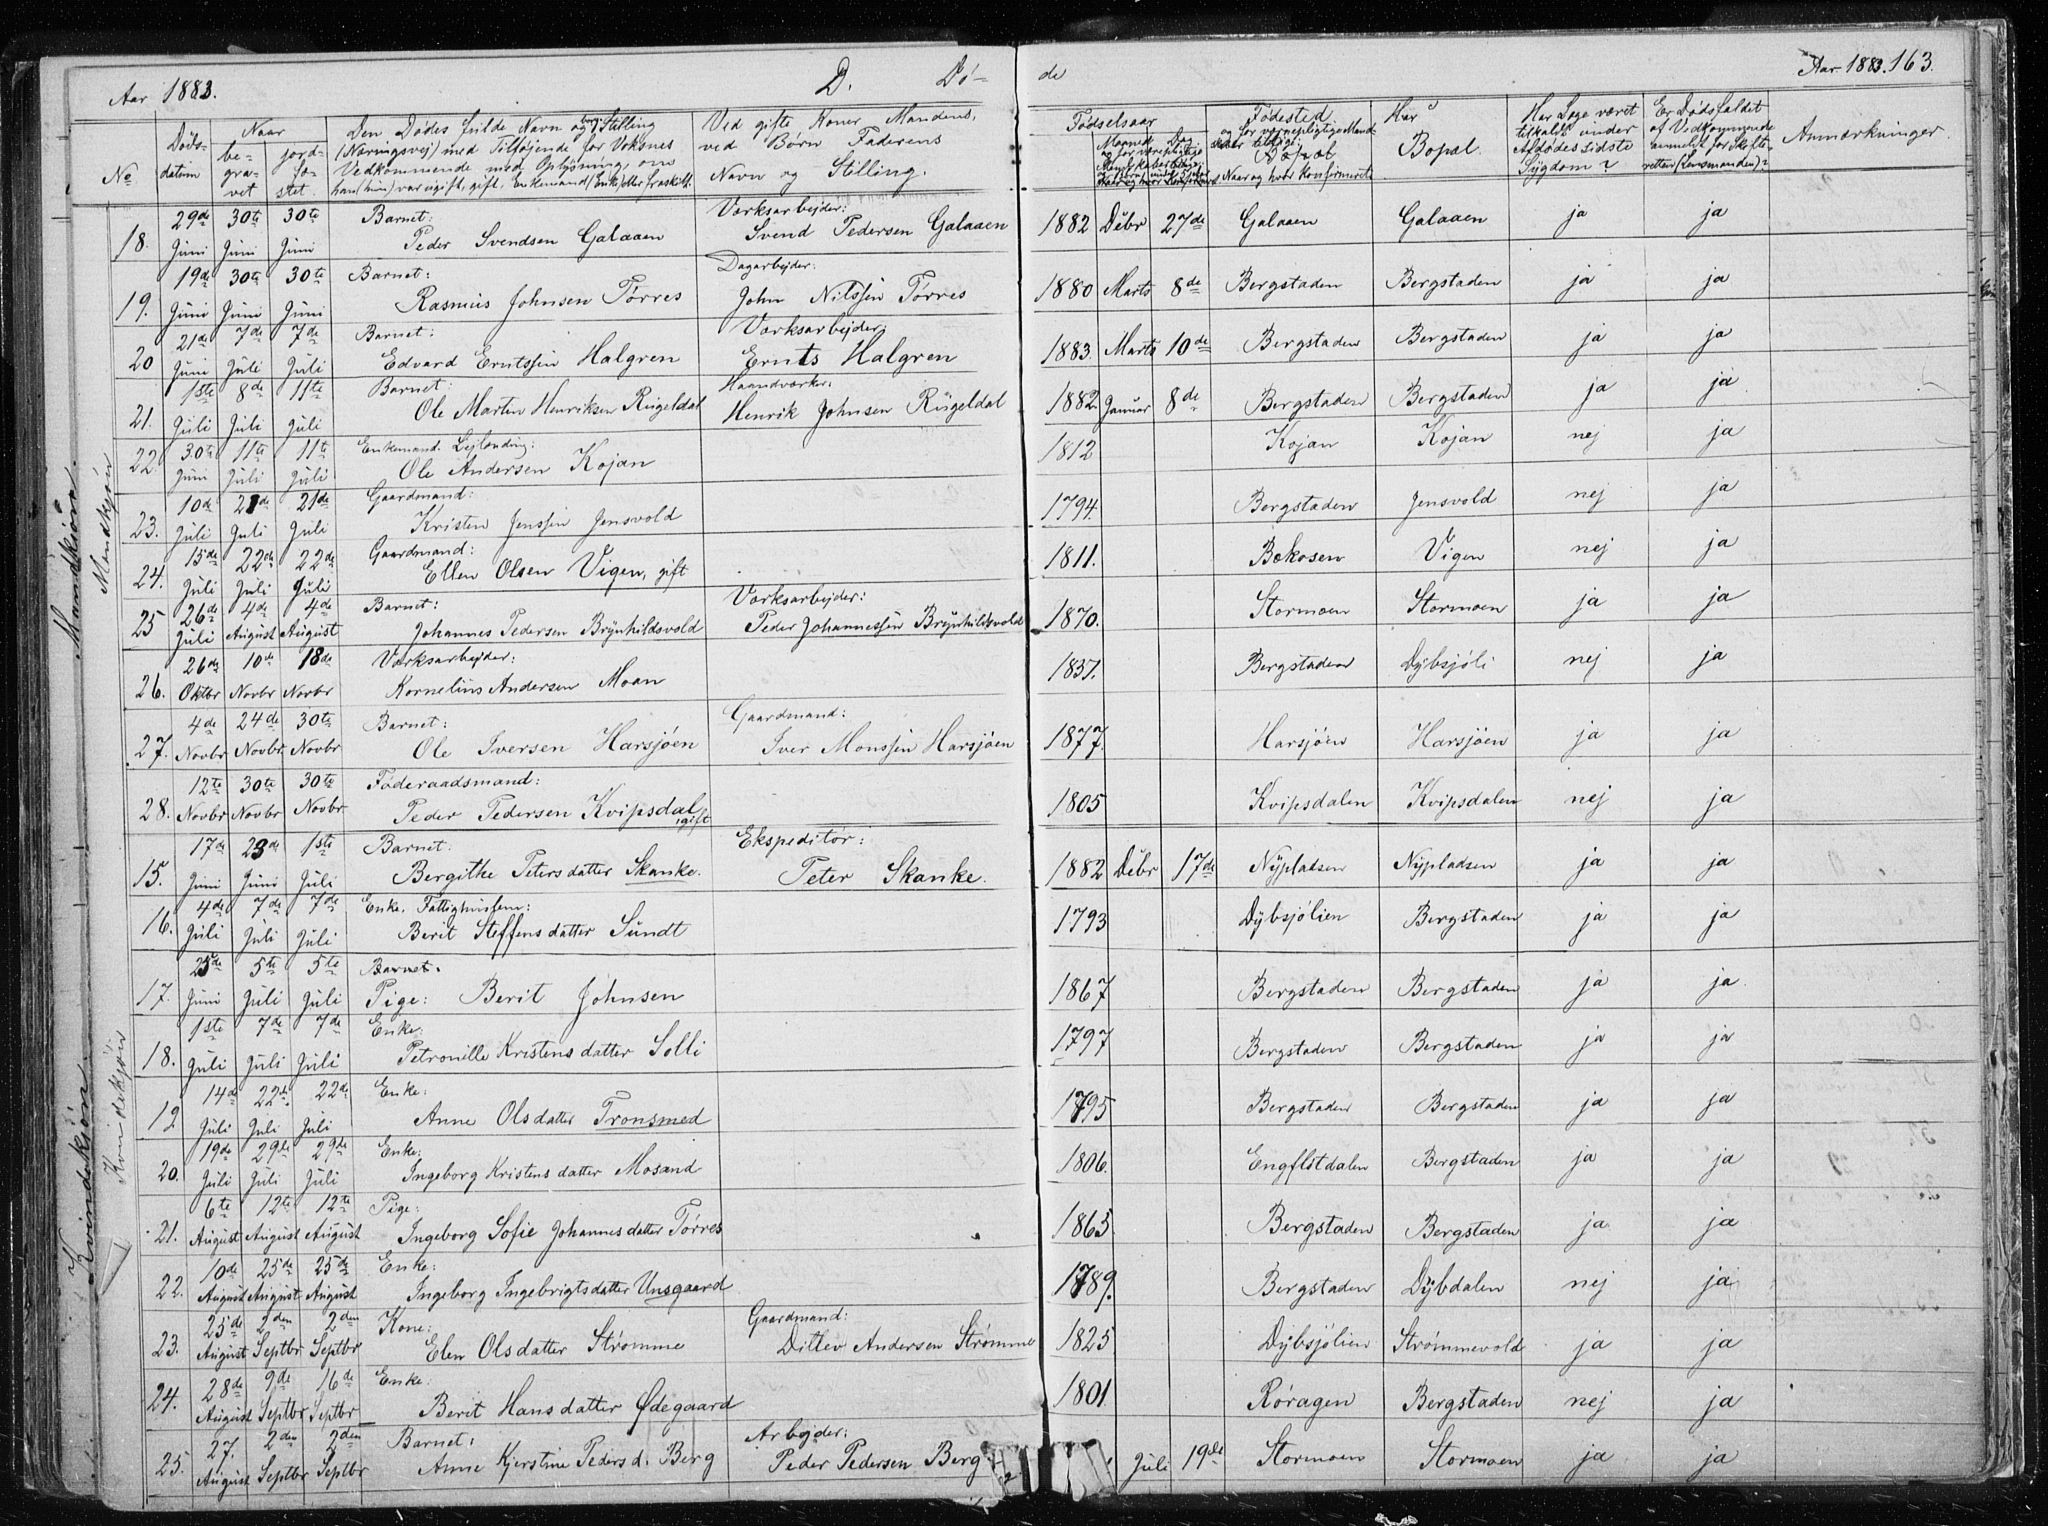 Aar 1883. D. Dö- de Aar 1883. 163.
No Döds- datum Naar be- gra- vet jord- fæ- stet. Den Dödes fulde Navn og Stilling (Næringsvej) med Tilföjende for Voksnes Vedkommende med Oplysning, om han (hun) var ugift, gift, Enkemand (Enke) eller fraskilt. Ved gifte Koner Mandens, ved Börn Faderens Navn og Stilling. Födselsaar Födested Bopæl Naar og hvor konfirmeret Bopæl. Har Læge været tilkaldt under Afdödes sidste Sygdom? Er Dödsfaldet af Vedkommende anmeldt for Skifte- retten (Lensmanden)? Anmærkninger
Mandkjön.
Mandkjön
18. 29de Juni 30te Juni 30te Juni Barnet: Peder Svendsen Galaaen Værksarbejder: Svend Pedersen Galaaen 1882 Debr 27de Galaaen Galaaen ja ja
19. 19de Juni 30te Juni 30te Juni Barnet: Rasmus Johnsen Törres Dagarbejder: John Nilssen Törres 1880 Marts 8de Bergstaden Bergstaden ja ja
20 21de Juni 7de Juli 7de Juli Barnet: Edvard Erntssen Halgren Værksarbejder: Ernts Halgren 1883 Marts 10de Bergstaden Bergstaden ja ja
21. 1ste Juli 8de Juli 11te Juli Barnet: Ole Martin Henriksen Rügeldal Haandværker: Henrik Johnsen Rügeldal 1882 Januar 8de Bergstaden Bergstaden ja ja
22. 30te Juni 11te Juli 11te Juli Enkemand. Lejlænding: Ole Andersen Kojan 1812 Kojan Kojan nej ja
23. 10de Juli 21de Juli 21de Juli Gaardmand: Kristen Jenssen Jensvold 1794. Bergstaden Jensvold nej ja
24. 15de Juli 22de Juli 22de Juli Gaardmand: Ellen Olsen Vigen, gift 1811. Bekosen Vigen nej ja
25 26de Juli 4de August 4de August Barnet: Johannes Pedersen Brynhildsvold Værksarbejder: Peder Johannessen Brynhildsvold 1870. Stormoen Stormoen ja ja
26. 26de Oktbr 10de Novbr 18de Novbr Værksarbejder: Kornelius Andersen Moan 1837. Bergstaden Dybsjöli nej ja
27. 4de Novbr. 24de Novbr. 30te Novbr Barnet: Ole Iversen Harsjöen Gaardmand: Iver Monssen Harsjöen 1877. Harsjöen Harsjöen ja ja
28. 12te Novbr 30te Novbr 30te Novbr Föderaadsmand: Peder Pedersen Kvipsdal, gift 1805 Kvipsdalen Kvipsdalen nej ja
Kvindekjön.
Kvindekjön
15. 17de Juni 23de Juni 1ste Juli Barnet: Bergithe Petersdatter Skanke. Ekspeditör: Peter Skanke. 1882 Debr 17de Nypladsen Nypladsen ja ja
16. 4de Juli 7de Juli 7de Juli Enke, Fattighuslem: Berit Steffensdatter Sundt 1793 Dybsjölien Bergstaden ja ja
17. 25de Juni 5te Juli 5te Juli Barnet. Pige: Berit Johnsen 1867 Bergstaden Bergstaden ja ja
18. 1ste Juli 7de Juli 7de Juli Enke: Petronille Kristensdatter Solli 1797 Bergstaden Bergstaden ja ja
19 14de Juli 22de Juli 22de Juli Enke: Anne Olsdatter Tronsmed 1795 Bergstaden Bergstaden ja ja
20. 19de Juli 29de Juli 29de Juli Enke: Ingeborg Kristensdatter Mosand 1806. Engflstdalen Bergstaden ja ja
21. 6te August 12te August 12te August Pige: Ingeborg Sofie Johannesdatter Törres 1863 Bergstaden Bergstaden ja ja
22. 10de August 25de August 25de August Enke: Ingeborg Ingebrigtsdatter Unsgaard 1789. Bergstaden Dybdalen nej ja
23. 25de August 2den Septbr 2den Septbr Kone: Elen Olsdatter Strömme Gaardmand: Ditlev Andersen Strömme 1825 Dybsjölien Strömmevold ja ja
24. 28de August 9de Septbr 16de Septbr Enke: Berit Hansdatter Ødegaard 1801 Röragen Bergstaden nej ja
25. 27. August 2den Septbr 2den Septbr Barnet: Anne Kjerstine Pedersd. Berg Arbejder: Peder Pedersen Berg Juli 19de Stormoen Stormoen ja ja